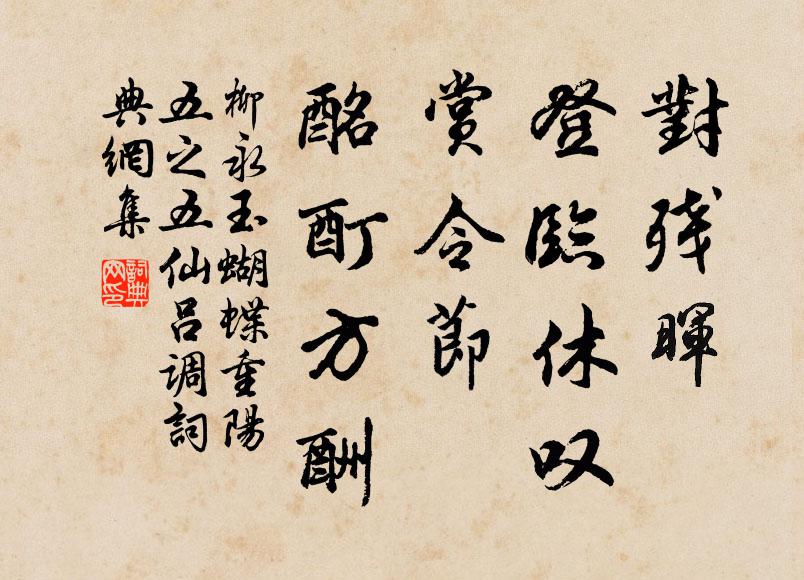 對残暉
登臨休叹
賞令節
酩酊方酬
柳永玉蝴蝶重陽
五之五仙吕調詞
典網集
詞典
网印